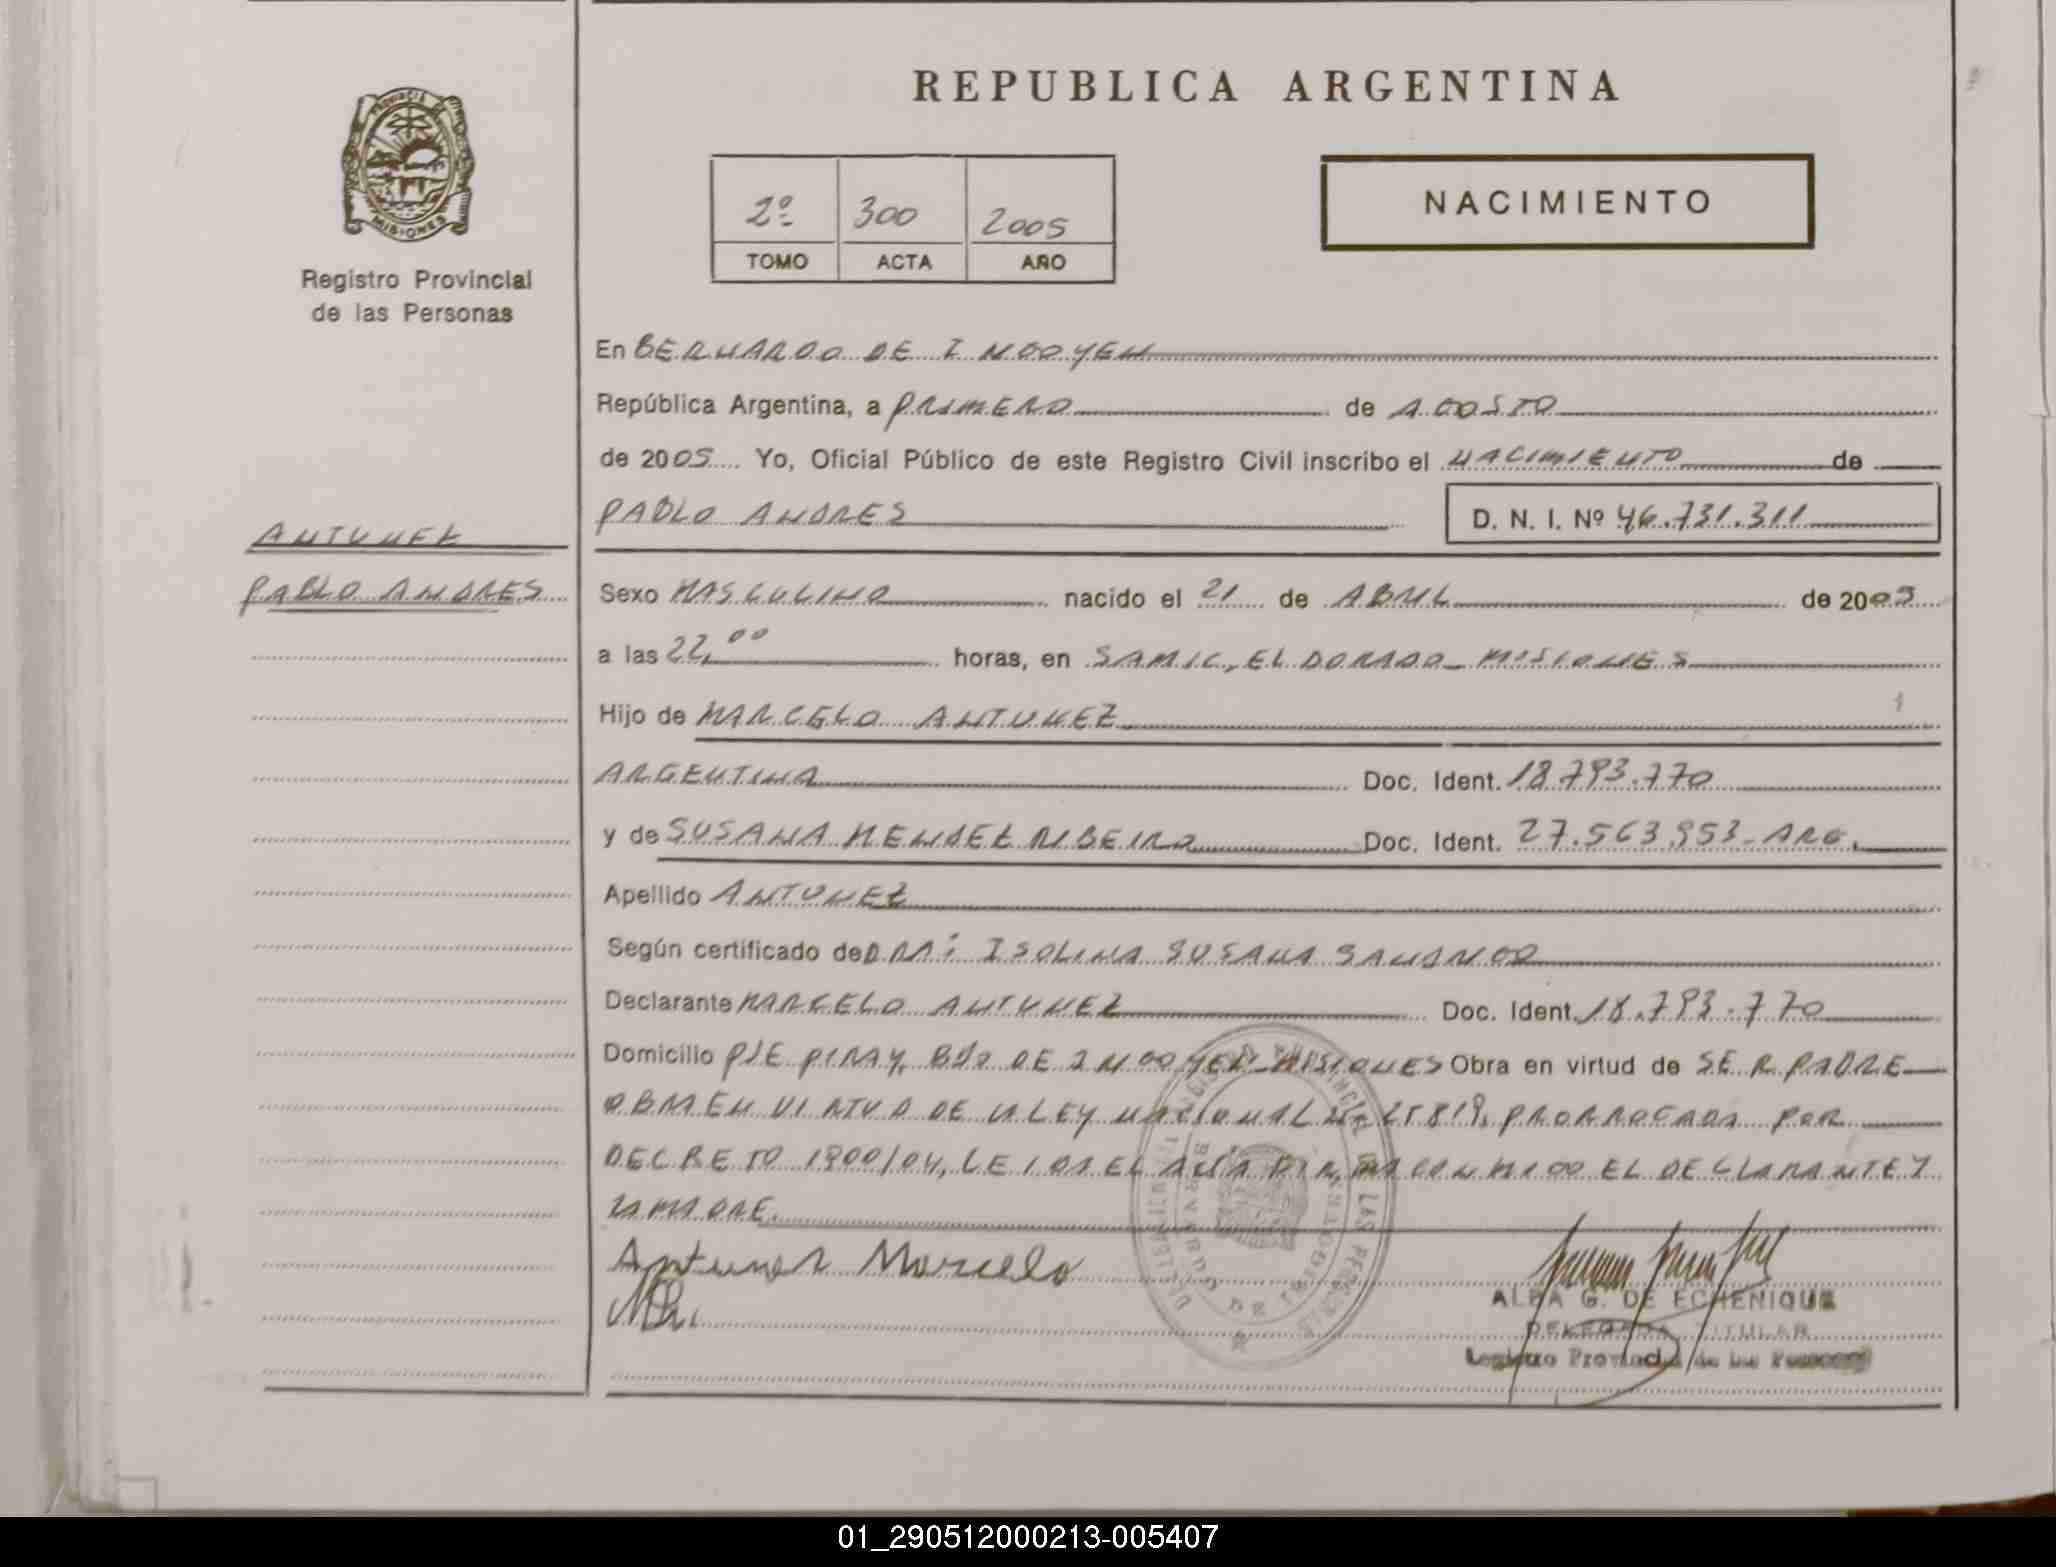 REPUBLICA ARGENTINA
PROVINCIA
MISIONES
Registro Provincial
de las Personas
2º 300 2005
TOMO ACTA AÑO
NACIMIENTO
En BERNARDO DE IRIGOYEN
República Argentina, a PRIMERO de AGOSTO
de 2005 Yo, Oficial Público de este Registro Civil inscribo el NACIMIENTO de
PABLO ANDRES D. N. I. Nº 46.731.311
ANTUNEZ
PABLO ANDRES
Sexo MASCULINO nacido el 21 de ABRIL de 2005
a las 22,00 horas, en SAMIC, ELDORADO - MISIONES
Hijo de MARCELO ANTUNEZ
ARGENTINA Doc. Ident. 18.793.770
y de SUSANA MENDEZ RIBEIRO Doc. Ident. 27.563.953 - ARG.
Apellido ANTUNEZ
Según certificado de DRA: ISOLINA SUSANA
Declarante MARCELO ANTUNEZ Doc. Ident. 18.793.770
Domicilio PJE PIRAY, BDO DE IRIGOYEN - MISIONES Obra en virtud de SER PADRE
OBRA EN VIRTUD DE LA LEY NACIONAL Nº 25819, PRORROGADA POR
DECRETO 1900/04, LEIDA EL ACTA FIRMAN CONMIGO EL DECLARANTE Y
LA MADRE.
Antunez Marcelo
ALBA G. DE ECHENIQUE
DELEGADA TITULAR
Registro Provincial de las Personas
01_290512000213-005407